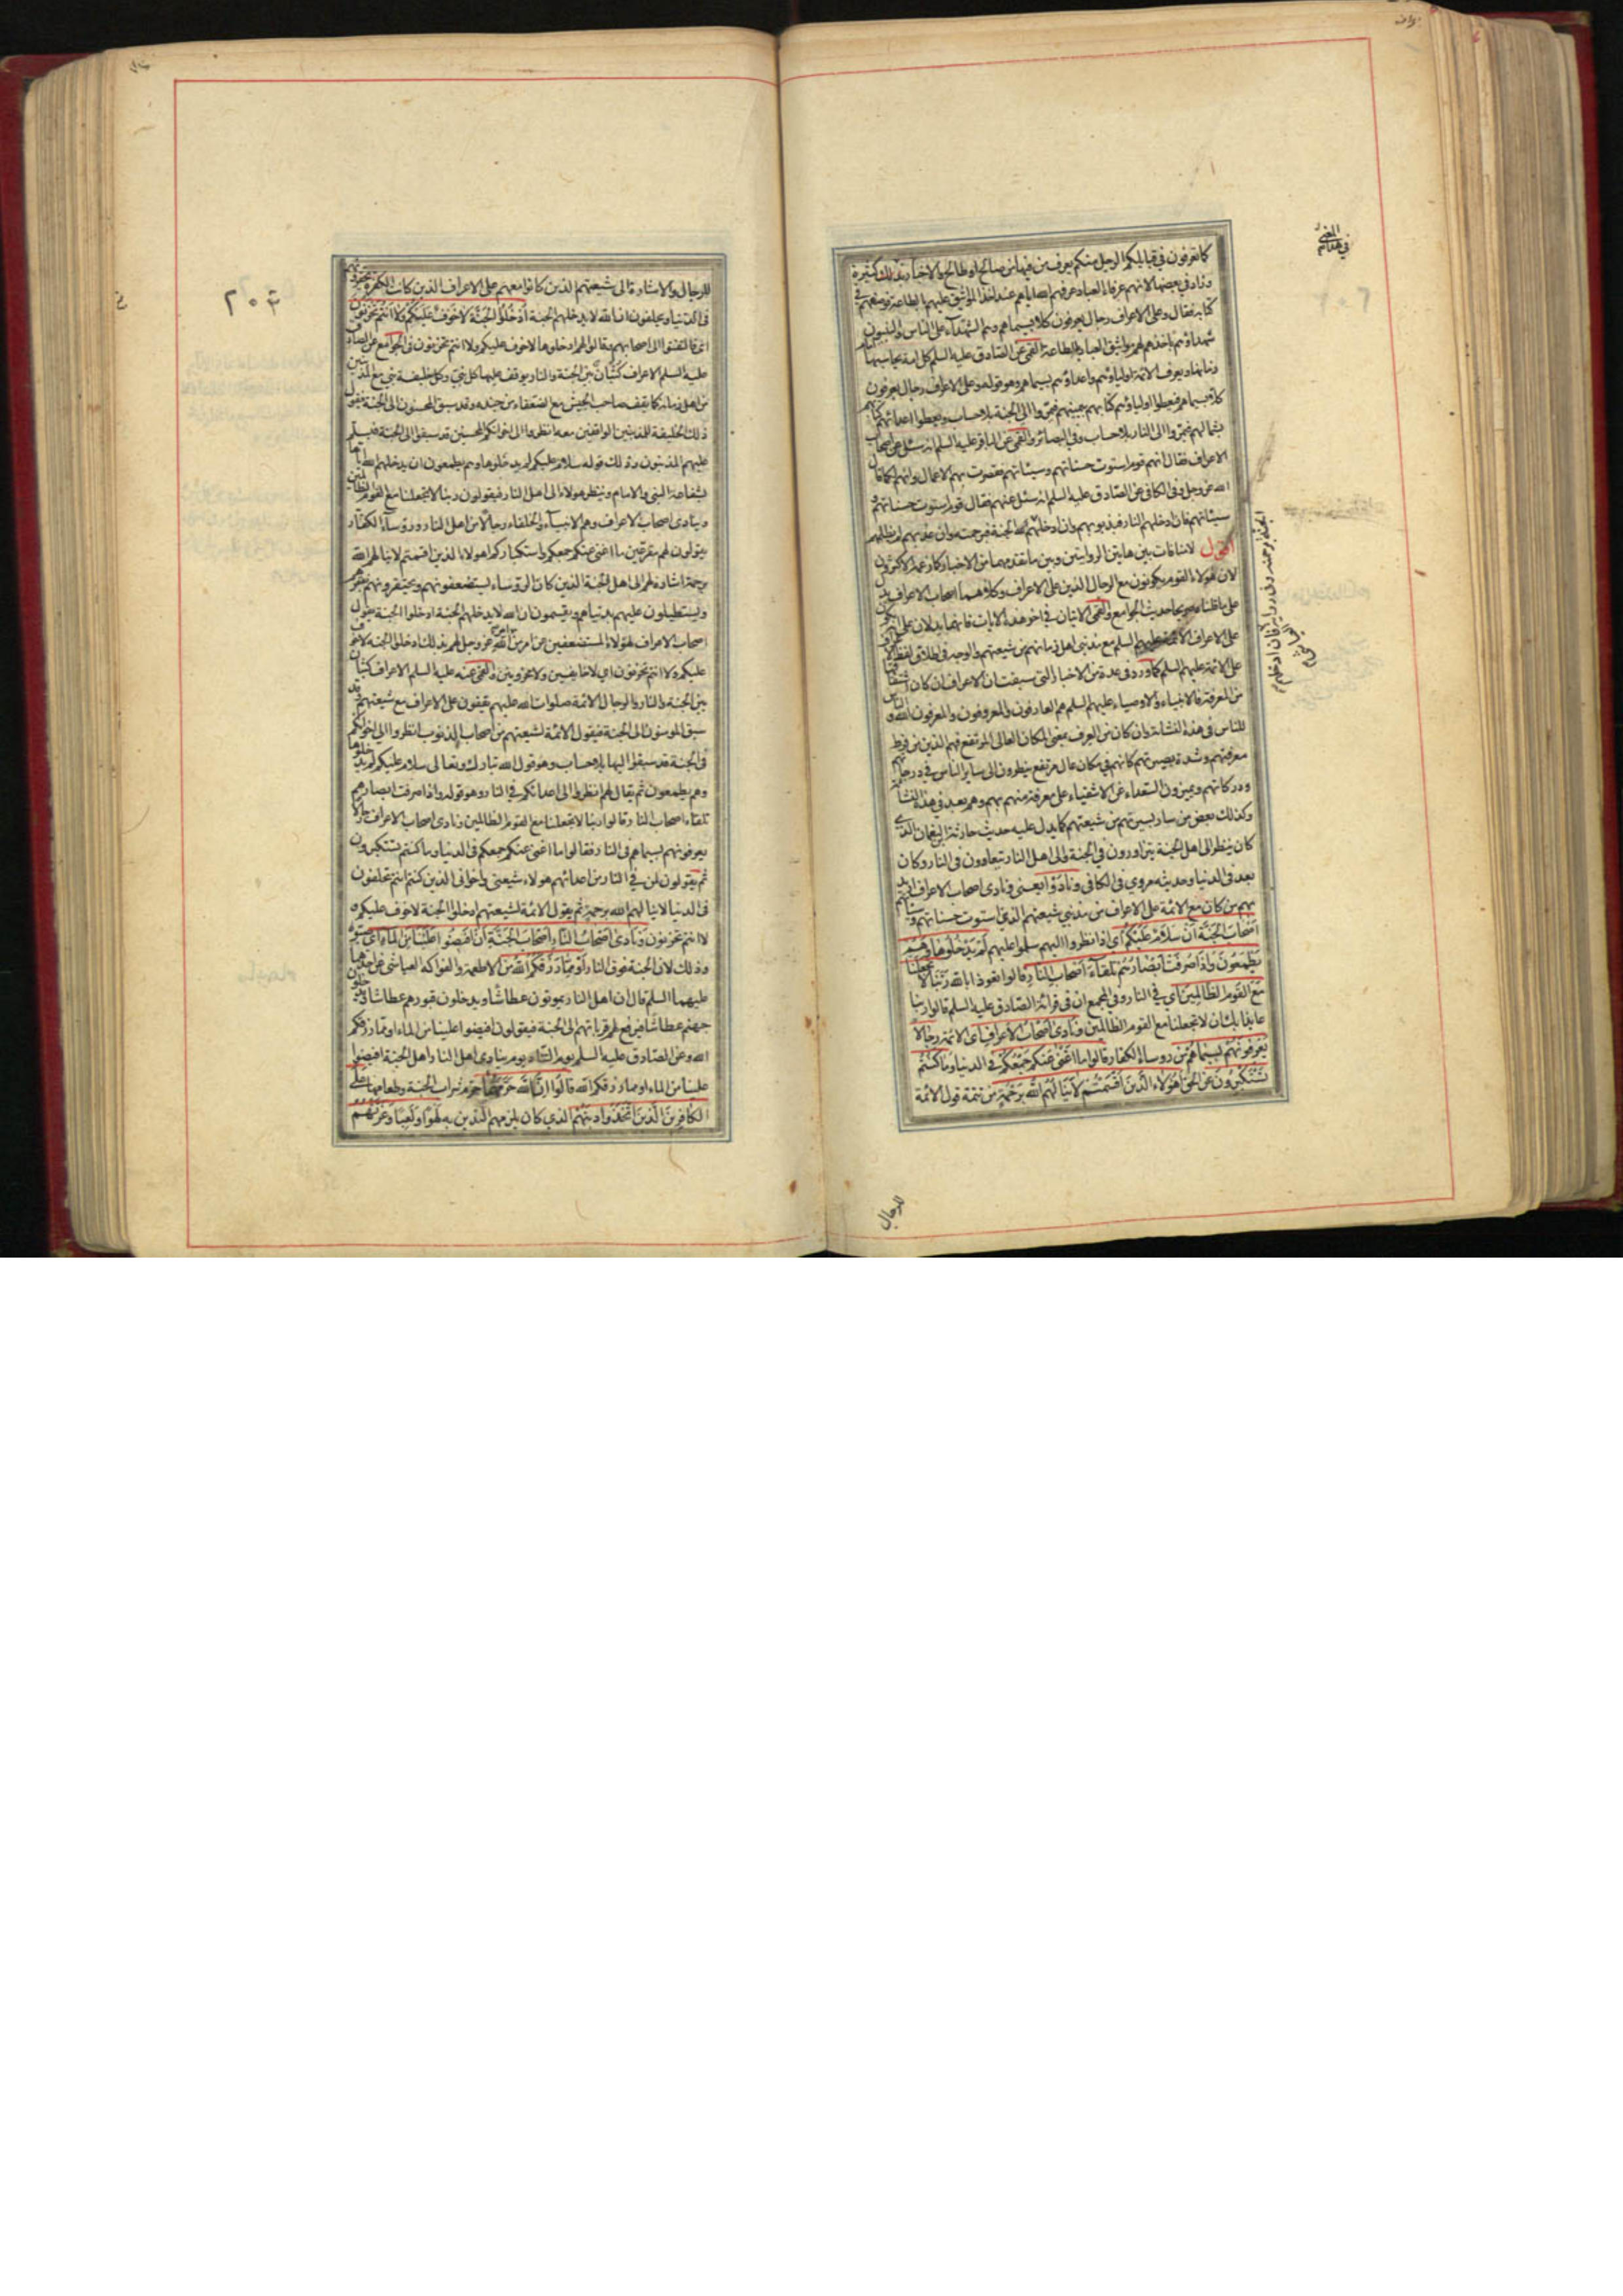 كما تعرفون في قبايلكم الرجل منكم يعرف من فيها من صالح او طالح والاخبار في ذلك كثيرة
وزاد في بعضها لانهم عرفاء العباد عرفهم اياهم عند اخذ المواثيق عليهم بالطاعة فوصفهم في
كتابه فقال وعلى الاعراف رجال يعرفون كلا بسيماهم وهم الشهداء على الناس والنبيون
شهداؤهم باخذهم لهم مواثيق العباد بالطاعة القمي عن الصادق عليه السلم كل امة يحاسبها امام
زمانها ويعرف الائمة اولياؤهم واعداؤهم بسيماهم وهو قوله وعلى الاعراف رجال يعرفون
كلا بسيماهم فيعطوا اولياؤهم كتابهم بيمينهم فيمروا الى الجنة بلا حساب ويعطوا اعدائهم كتابهم
بشمالهم فيمروا الى النار بلا حساب وفي البصائر والقمي عن الباقر عليه السلم انه سئل عن اصحاب
الاعراف فقال انهم قوم استوت حسناتهم وسيئاتهم فقصرت بهم الاعمال وانهم لكما قال
الله عز وجل وفي الكافي عن الصادق عليه السلم انه سئل عنهم فقال قوم استوت حسناتهم و
سيئاتهم فان ادخلهم النار فبذنوبهم وان ادخلهم الله الجنة فبرحمته وان عذبهم لم يظلمهم
اقول لا منافات بين هاتين الروايتين وبين ما تقدمهما من الاخبار كما زعمه الاكثرون
لان هؤلاء القوم يكونون مع الرجال الذين على الاعراف وكلاهما اصحاب الاعراف يدل
على ما قلناه صريحا حديث الجوامع والقمي الاتيان في اخر هذه الايات فانهما يدلان على
على الاعراف الائمة عليهم السلم مع مذنبي اهل زمانهم من شيعتهم والوجه في اطلاق لفظ الاعراف
على الائمة عليهم السلم كما ورد في عدة من الاخبار التي سبقت ان الاعراف ان كان اشتقاقها
من المعرفة فالانبياء والاوصياء عليهم السلم هم العارفون والمعروفون والمعرفون الله و الناس
للناس في هذه النشاة وان كان من العرف بمعنى المكان العالي المرتفع فهم الذين من فرط
معرفتهم وشدة بصيرتهم كانهم في مكان عال مرتفع ينظرون الى ساير الناس في درجاتهم
ودركاتهم ويميزون السعداء عن الاشقياء على معرفة منهم بهم وهم بعد في هذه النشاة
وكذلك بعض من سار بسيرتهم من شيعتهم كما يدل عليه حديث حارثة بن النعمان الذي
كان ينظر الى اهل الجنة يتزاورون في الجنة والى اهل النار يتعاوون في النار وكان
بعد في الدنيا وحديثه مروي في الكافي ونادوا يعني ونادى اصحاب الاعراف اريد
بهم من كان مع الائمة على الاعراف من مذنبي شيعتهم الذين استوت حسناتهم وسيئاتهم
اصحاب الجنة ان سلام عليكم اي اذا نظروا اليهم سلموا عليهم لم يدخلوها وهم
يطمعون واذا صرفت ابصارهم تلقاء اصحاب النار قالوا نعوذ بالله ربنا لا تجعلنا
مع القوم الظالمين اي في النار وفي المجمع ان في قرائة الصادق عليه السلم قالوا ربنا
عايذا بك ان لا تجعلنا مع القوم الظالمين ونادى اصحاب الاعراف اي الائمة رجالا
يعرفونهم بسيماهم من روساء الكفار قالوا ما اغنى عنكم جمعكم في الدنيا وما كنتم
تستكبرون عن الحق اهؤلاء الذين اقسمتم لا ينالهم الله برحمة من تتمة قول الائمة
للرجال
في هدايتهم
الجنة برحمته وفي رواية فان ادخلهم
٢٠٣
للرجال والاشارة الى شيعتهم الذين كانوا معهم على الاعراف الذين كانت الكفرة يحقرونهم
في الدنيا ويحلفون ان الله لا يدخلهم الجنة ادخلوا الجنة لا خوف عليكم ولا انتم تحزنون
اي فالتفتوا الى اصحابهم وقالوا لهم ادخلوها لا خوف عليكم ولا انتم تحزنون في الجوامع عن الصادق
عليه السلم الاعراف كثبان بين الجنة والنار يوقف عليها كل نبي وكل خليفة نبي مع المذنبين
من اهل زمانه كما يقف صاحب الجيش مع الضعفاء من جنده وقد سبق المحسنون الى الجنة فيقول
ذلك الخليفة للمذنبين الواقفين معه انظروا الى اخوانكم المحسنين قد سبقوا الى الجنة فيسلم
عليهم المذنبون وذلك قوله سلام عليكم لم يدخلوها وهم يطمعون ان يدخلهم الله اياها
بشفاعة النبي والامام وينظر هؤلاء الى اهل النار فيقولون ربنا لا تجعلنا مع القوم الظالمين
وينادى اصحاب الاعراف وهم الانبياء والخلفاء رجالا من اهل النار ورؤساء الكفار
يقولون لهم مقرعين ما اغنى عنكم جمعكم واستكباركم اهؤلاء الذين اقسمتم لا ينالهم الله
برحمة اشارة لهم الى اهل الجنة الذين كان الرؤساء يستضعفونهم ويحتقرونهم بفقرهم
ويستطيلون عليهم بدنياهم ويقسمون ان الله لا يدخلهم الجنة ادخلوا الجنة يقول
اصحاب الاعراف لهؤلاء المستضعفين عن امر من الله عز وجل لهم بذلك ادخلوا الجنة لا خوف
عليكم ولا انتم تحزنون اي لا خايفين ولا محزونين والقمي عنه عليه السلم الاعراف كثبان
بين الجنة والنار والرجال الائمة صلوات الله عليهم يقفون على الاعراف مع شيعتهم وقد
سبق المؤمنون الى الجنة فيقول الائمة لشيعتهم من اصحاب الذنوب انظروا الى اخوانكم
في الجنة قد سبقوا اليها بلا حساب وهو قول الله تبارك وتعالى سلام عليكم لم يدخلوها
وهم يطمعون ثم يقال لهم انظروا الى اعدائكم في النار وهو قوله واذا صرفت ابصارهم
تلقاء اصحاب النار قالوا ربنا لا تجعلنا مع القوم الظالمين ونادى اصحاب الاعراف رجالا
يعرفونهم بسيماهم في النار فقالوا ما اغنى عنكم جمعكم في الدنيا وما كنتم تستكبرون
ثم يقولون لمن في النار من اعدائهم هؤلاء شيعتي واخواني الذين كنتم انتم تحلفون
في الدنيا لا ينالهم الله برحمة ثم يقول الائمة لشيعتهم ادخلوا الجنة لا خوف عليكم و
لا انتم تحزنون ونادى اصحاب النار اصحاب الجنة ان افيضوا علينا من الماء اي صبوه
وذلك لان الجنة فوق النار او مما رزقكم الله من الاطعمة والفواكه العياشي عن احدهما
عليهما السلم قال ان اهل النار يموتون عطاشا ويدخلون قبورهم عطاشا ويدخلون
جهنم عطاشا فيرفع لهم قراباتهم الى الجنة فيقولون افيضوا علينا من الماء او مما رزقكم
الله وعن الصادق عليه السلم يوم التناد يوم ينادى اهل النار اهل الجنة افيضوا
علينا من الماء او مما رزقكم الله قالوا ان الله حرمهما حرم شراب الجنة وطعامها على
الكافرين الذين اتخذوا دينهم الذي كان يلزمهم التدين به لهوا ولعبا وغرتهم